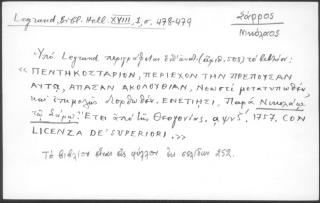 Legrand, Bibl. Hell. XVIII, 1, σ. 478-479
Σάρρος
Νικόλαος
Ὑπὸ Legrand περιγράφεται ὑπ' ἀριθ. 505) τὸ βιβλίον:
«ΠΕΝΤΗΚΟΣΤΑΡΙΟΝ, ΠΕΡΙΕΧΟΝ ΤΗΝ ΠΡΕΠΟΥΣΑΝ
ΑΥΤΩ, ΑΠΑΣΑΝ ΑΚΟΛΟΥΘΙΑΝ, Νεωστὶ μετατυπωθὲν
καὶ ἐπιμελῶς διορθωθέν. ΕΝΕΤΙΗΣΙ, Παρὰ Νικολάῳ
τῷ Σάρῳ. Ἔτει ἀπὸ τῆς Θεογονίας, αψνζ΄. 1757. CON
LICENZA DE' SUPERIORI.»
Τὸ βιβλίον εἶναι εἰς φύλλον ἐκ σελίδων 252.